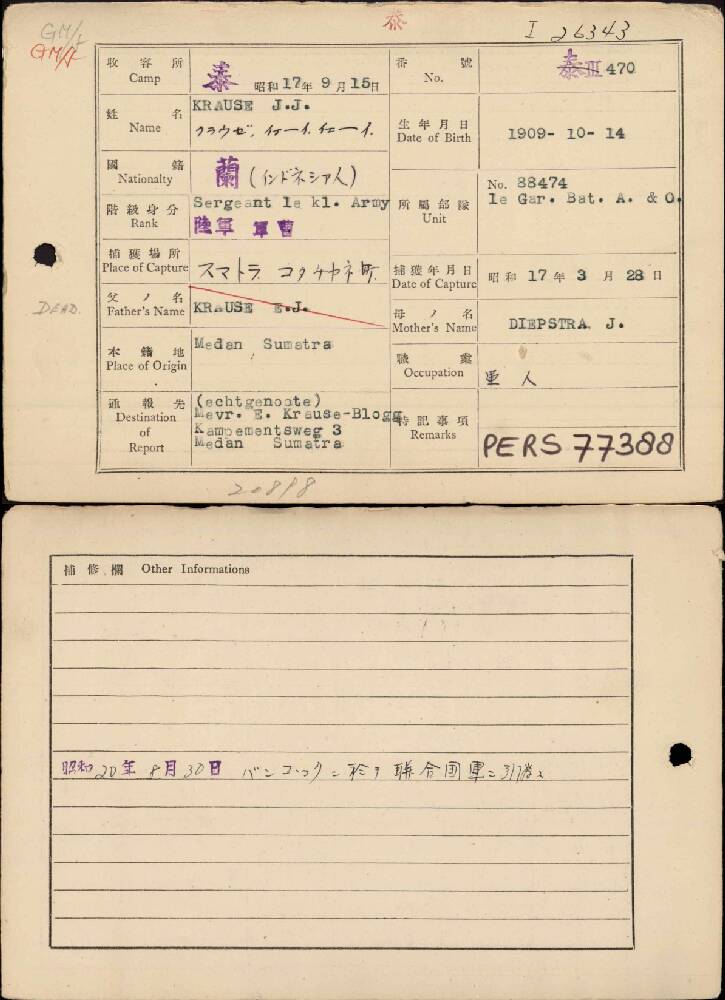 GM/1
GM/1
泰
I 26343
收容所 Camp
泰 昭和17年9月15日
番號 No.
泰III 470
姓名 Name
KRAUSE J.J.
クラウゼ,
生年月日 Date of Birth
1909- 10- 14
國籍 Nationalty
蘭 (インドネシア人)
階級身分 Rank
Sergeant 1e kl. Army
陸軍 軍曹
所屬部隊 Unit
No. 88474
1e Gar. Bat. A. & O.
捕獲場所 Place of Capture
スマトラ コタチヤネ町
捕獲年月日 Date of Capture
昭和 17 年 3 月 28 日
DEAD.
父ノ名 Father's Name
KRAUSE E.J.
母ノ名 Mother's Name
DIEPSTRA J.
本籍地 Place of Origin
Medan Sumatra
職業 Occupation
軍人
通報先 Destination of Report
(echtgenoote)
Mevr. E. Krause-Blogg
Kampementsweg 3
Medan Sumatra
特記事項 Remarks
PERS 77388
20898
補修欄 Other Informations
昭和20年8月30日 バンコックニ於テ聯合国軍ニ引渡ス